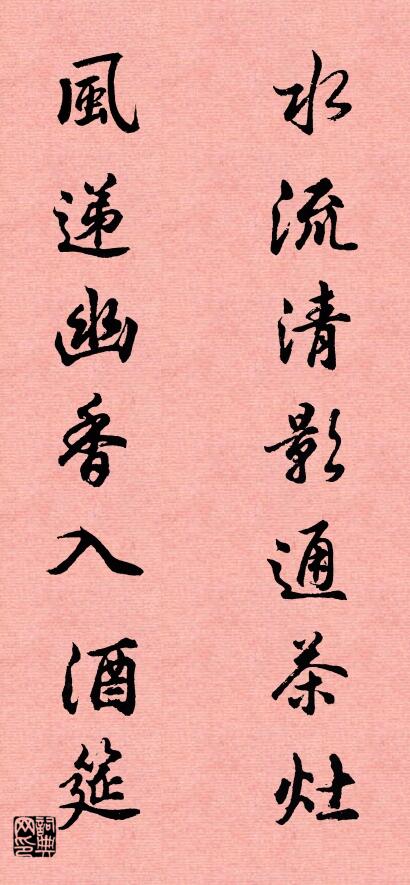 水流清影通茶灶
風递幽香入酒筵
詞典网印